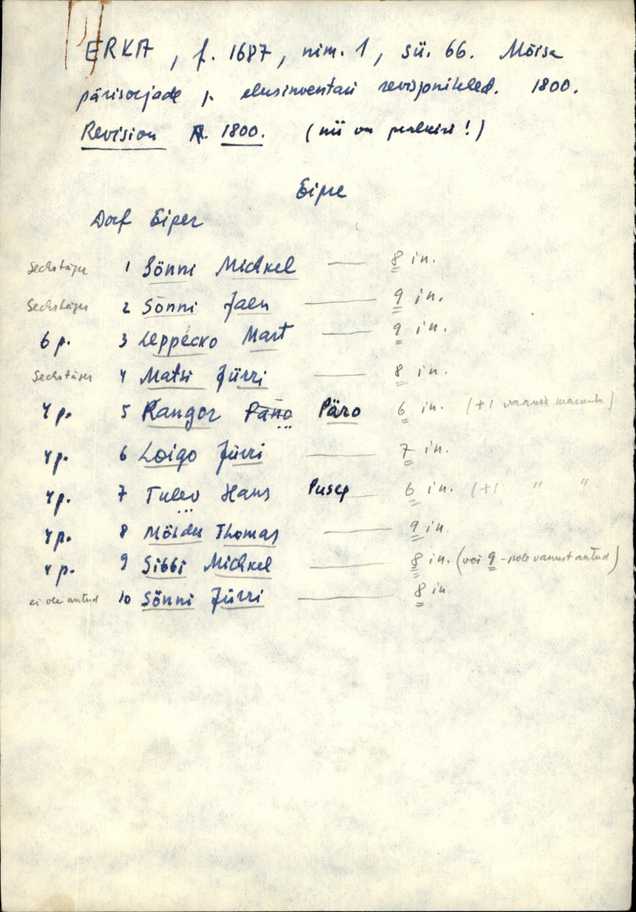 ERKA, f. 1687, nim. 1, sü. 66. Mõisa
pärisorjade ja elusinventari revisjonilehed. 1800.
Revision A. 1800. (nii on pealkiri!)
Eipre
Dorf Eiper
Sechstäger 1 Sönni Michkel — 8 in.
Sechstäger 2 Sönni Jaen — 9 in.
6 p. 3 Leppecko Mart — 9 in.
Sechstäger 4 Matsi Jürri — 8 in.
4 p. 5 Kangor Päno Päro 6 in. (+1
4 p. 6 Loigo Jürri — 7 in.
4 p. 7 Tulev Hans Pusep — 6 in. (+1 " "
4 p. 8 Möldu Thomas — 9 in.
4 p. 9 Sibbi Michkel — 8 in. (või 9 - pole vanust antud)
ei ole antud 10 Sönni Jürri — 8 in.